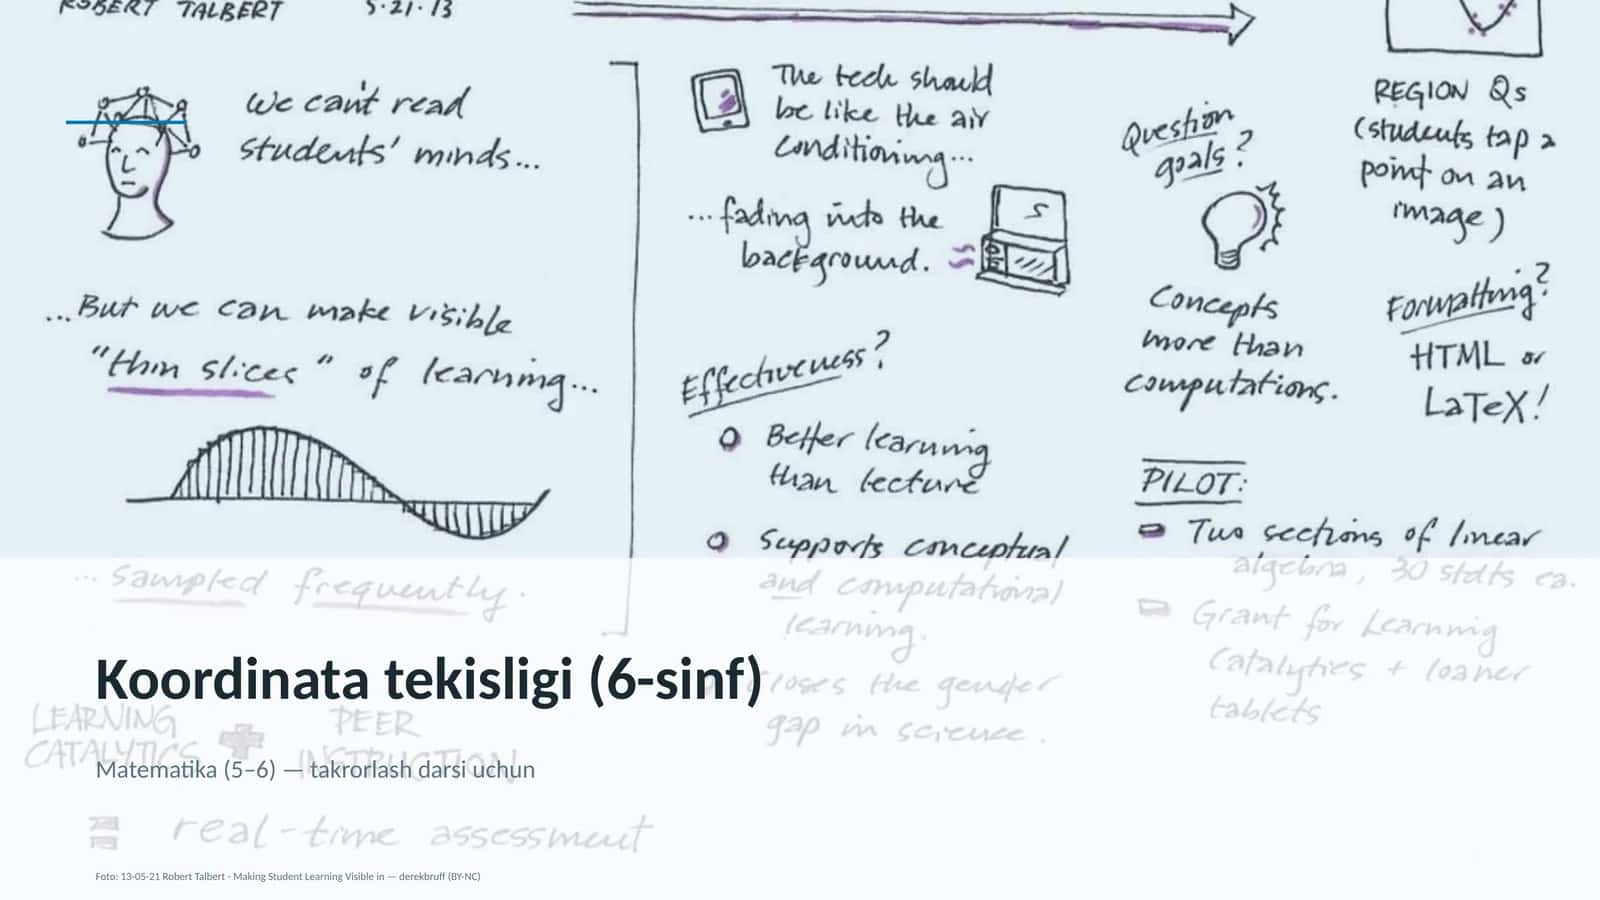 ROBERT TALBERT 5·21·13
We can't read
students' minds...
...But we can make visible
"thin slices" of learning...
... sampled frequently.
LEARNING
CATALYTICS
PEER
INSTRUCTION
real-time assessment
The tech should
be like the air
conditioning...
...fading into the
background.
Effectiveness?
Better learning
than lecture
Supports conceptual
and computational
learning.
Closes the gender
gap in science.
Question
goals?
Concepts
more than
computations.
REGION Qs
(students tap a
point on an
image)
Formatting?
HTML or
LaTeX!
PILOT:
Two sections of linear
algebra, 30 stdts ea.
Grant for Learning
Catalytics + loaner
tablets
Koordinata tekisligi (6-sinf)
Matematika (5–6) — takrorlash darsi uchun
Foto: 13-05-21 Robert Talbert - Making Student Learning Visible in — derekbruff (BY-NC)